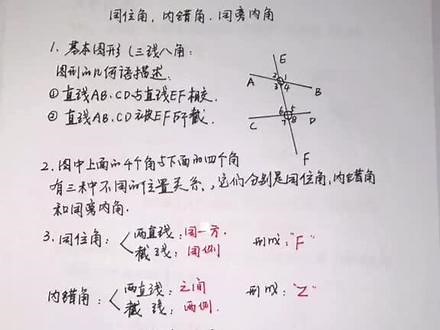 同位角,内错角,同旁内角
1. 基本图形(三线八角:
图形的几何语描述:
① 直线AB、CD与直线EF相交.
② 直线AB、CD被EF所截.
E
A
2 1
3 4
B
C
6 5
7 8
D
F
2. 图中上面的4个角与下面的四个角
有三种不同的位置关系,它们分别是同位角,内错角
和同旁内角.
3. 同位角: 两直线:同一方. 形如:"F"
截线:同侧
内错角: 两直线:之间 形如:"Z"
截线:两侧.